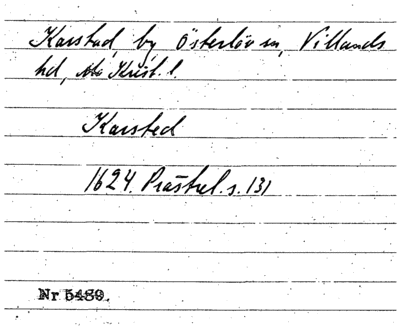 Karstad, by Österlöv sn, Villands
hd, Krist. l.
Karsted
1624. Prästrel. s. 131
Nr 5489.